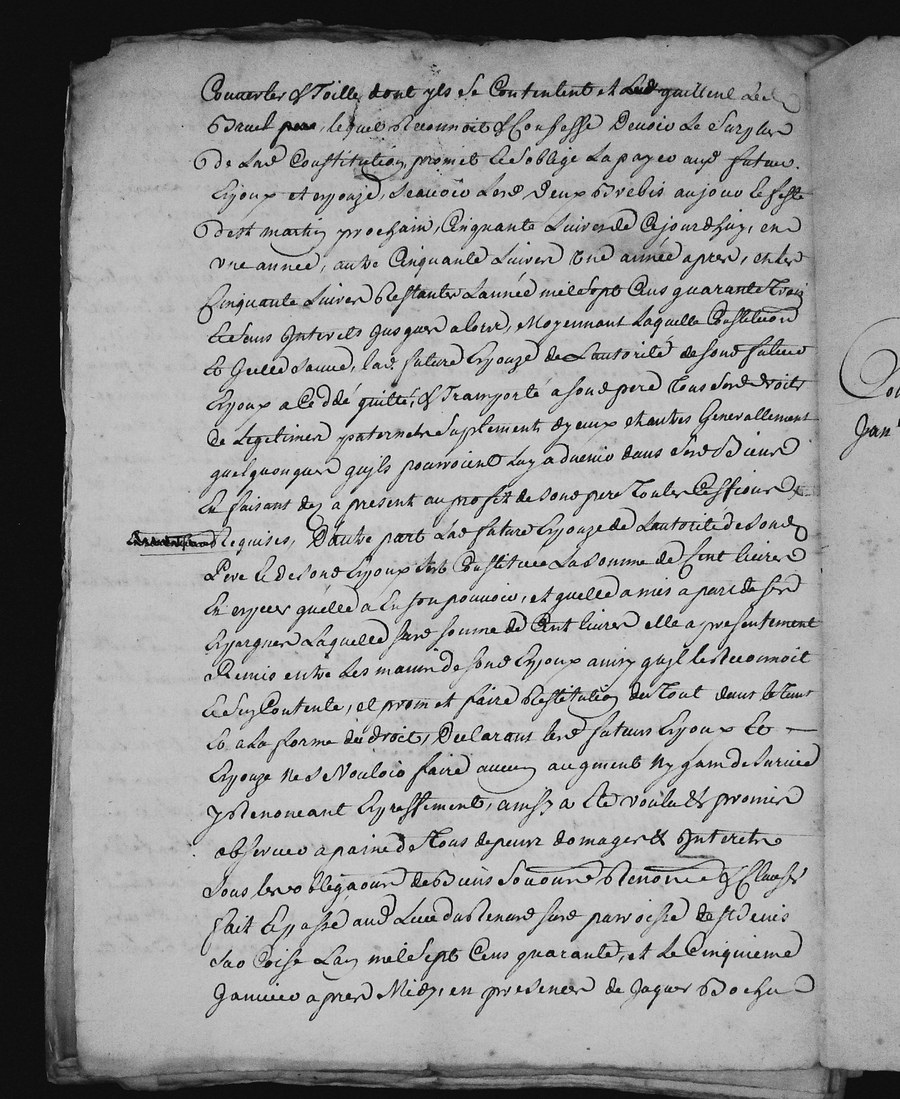 Couverte & Toille dont yls se Contentent et Led guilleme Le
Bruel pere, lequel Reconnoit & Confesse Devoir Le Surplus
De Lad Constitution promet et Soblige La payer aud futurs
Epoux et epouze, scavoir Lesd Deux Brebis au jour et feste
de st martin prochain, Cinquante Livres de Cejourdhuy, en
une année, autre Cinquante Livres Une année apres, et Les
Cinquante Livres Restantes Lannée mil Sept Cens quarante Trois
et sans Interets jusques alors, Moyennant Laquelle Constitution
Et Jcelle sauve, lad. future Epouze de Lautorité de sond futur
Epoux a Ceddé quitté, & Transporté a sond pere Tous Sesd droits
de Legitimes paternels Suplement dyceux et autres Generallement
quelquonques quyls pourroient Luy advenir dans sesd Biens
En faisant dez a present au profit de sond pere Toutes Cessions
Requises, Dautre part Lad future Epouze de Lautorité de sond
Pere et de sond Epoux sest Constituée La somme de Cent livres
En especes quelle a En son pouvoir, et quelle a mis a part de ses
Epargnes Laquelle susd somme de Cent livres elle a presentement
Remis entre Les mains de sond Epoux ainsy quyl le Reconnoit
et sen Contente, et promet faire Restitution du Tout dans le Tems
Et a La forme du droit, Declarant lesd futurs Epoux Et
Epouze ne Vouloir faire aucun augment ny gain de survie
y Renonceant Expressement, ainsy a Eté voulu & promis
observer a paine de Tous depens domages & Interets
Sous les obligaons de Biens Renonce & Clauses
fait et passé aud Lieu du Renard susd parroisse de st Denis
sur Coise Lan mil Sept Cens quarante, et Le Cinquieme
Janvier apres Midy, en presences de Jaques Bochu
Jan